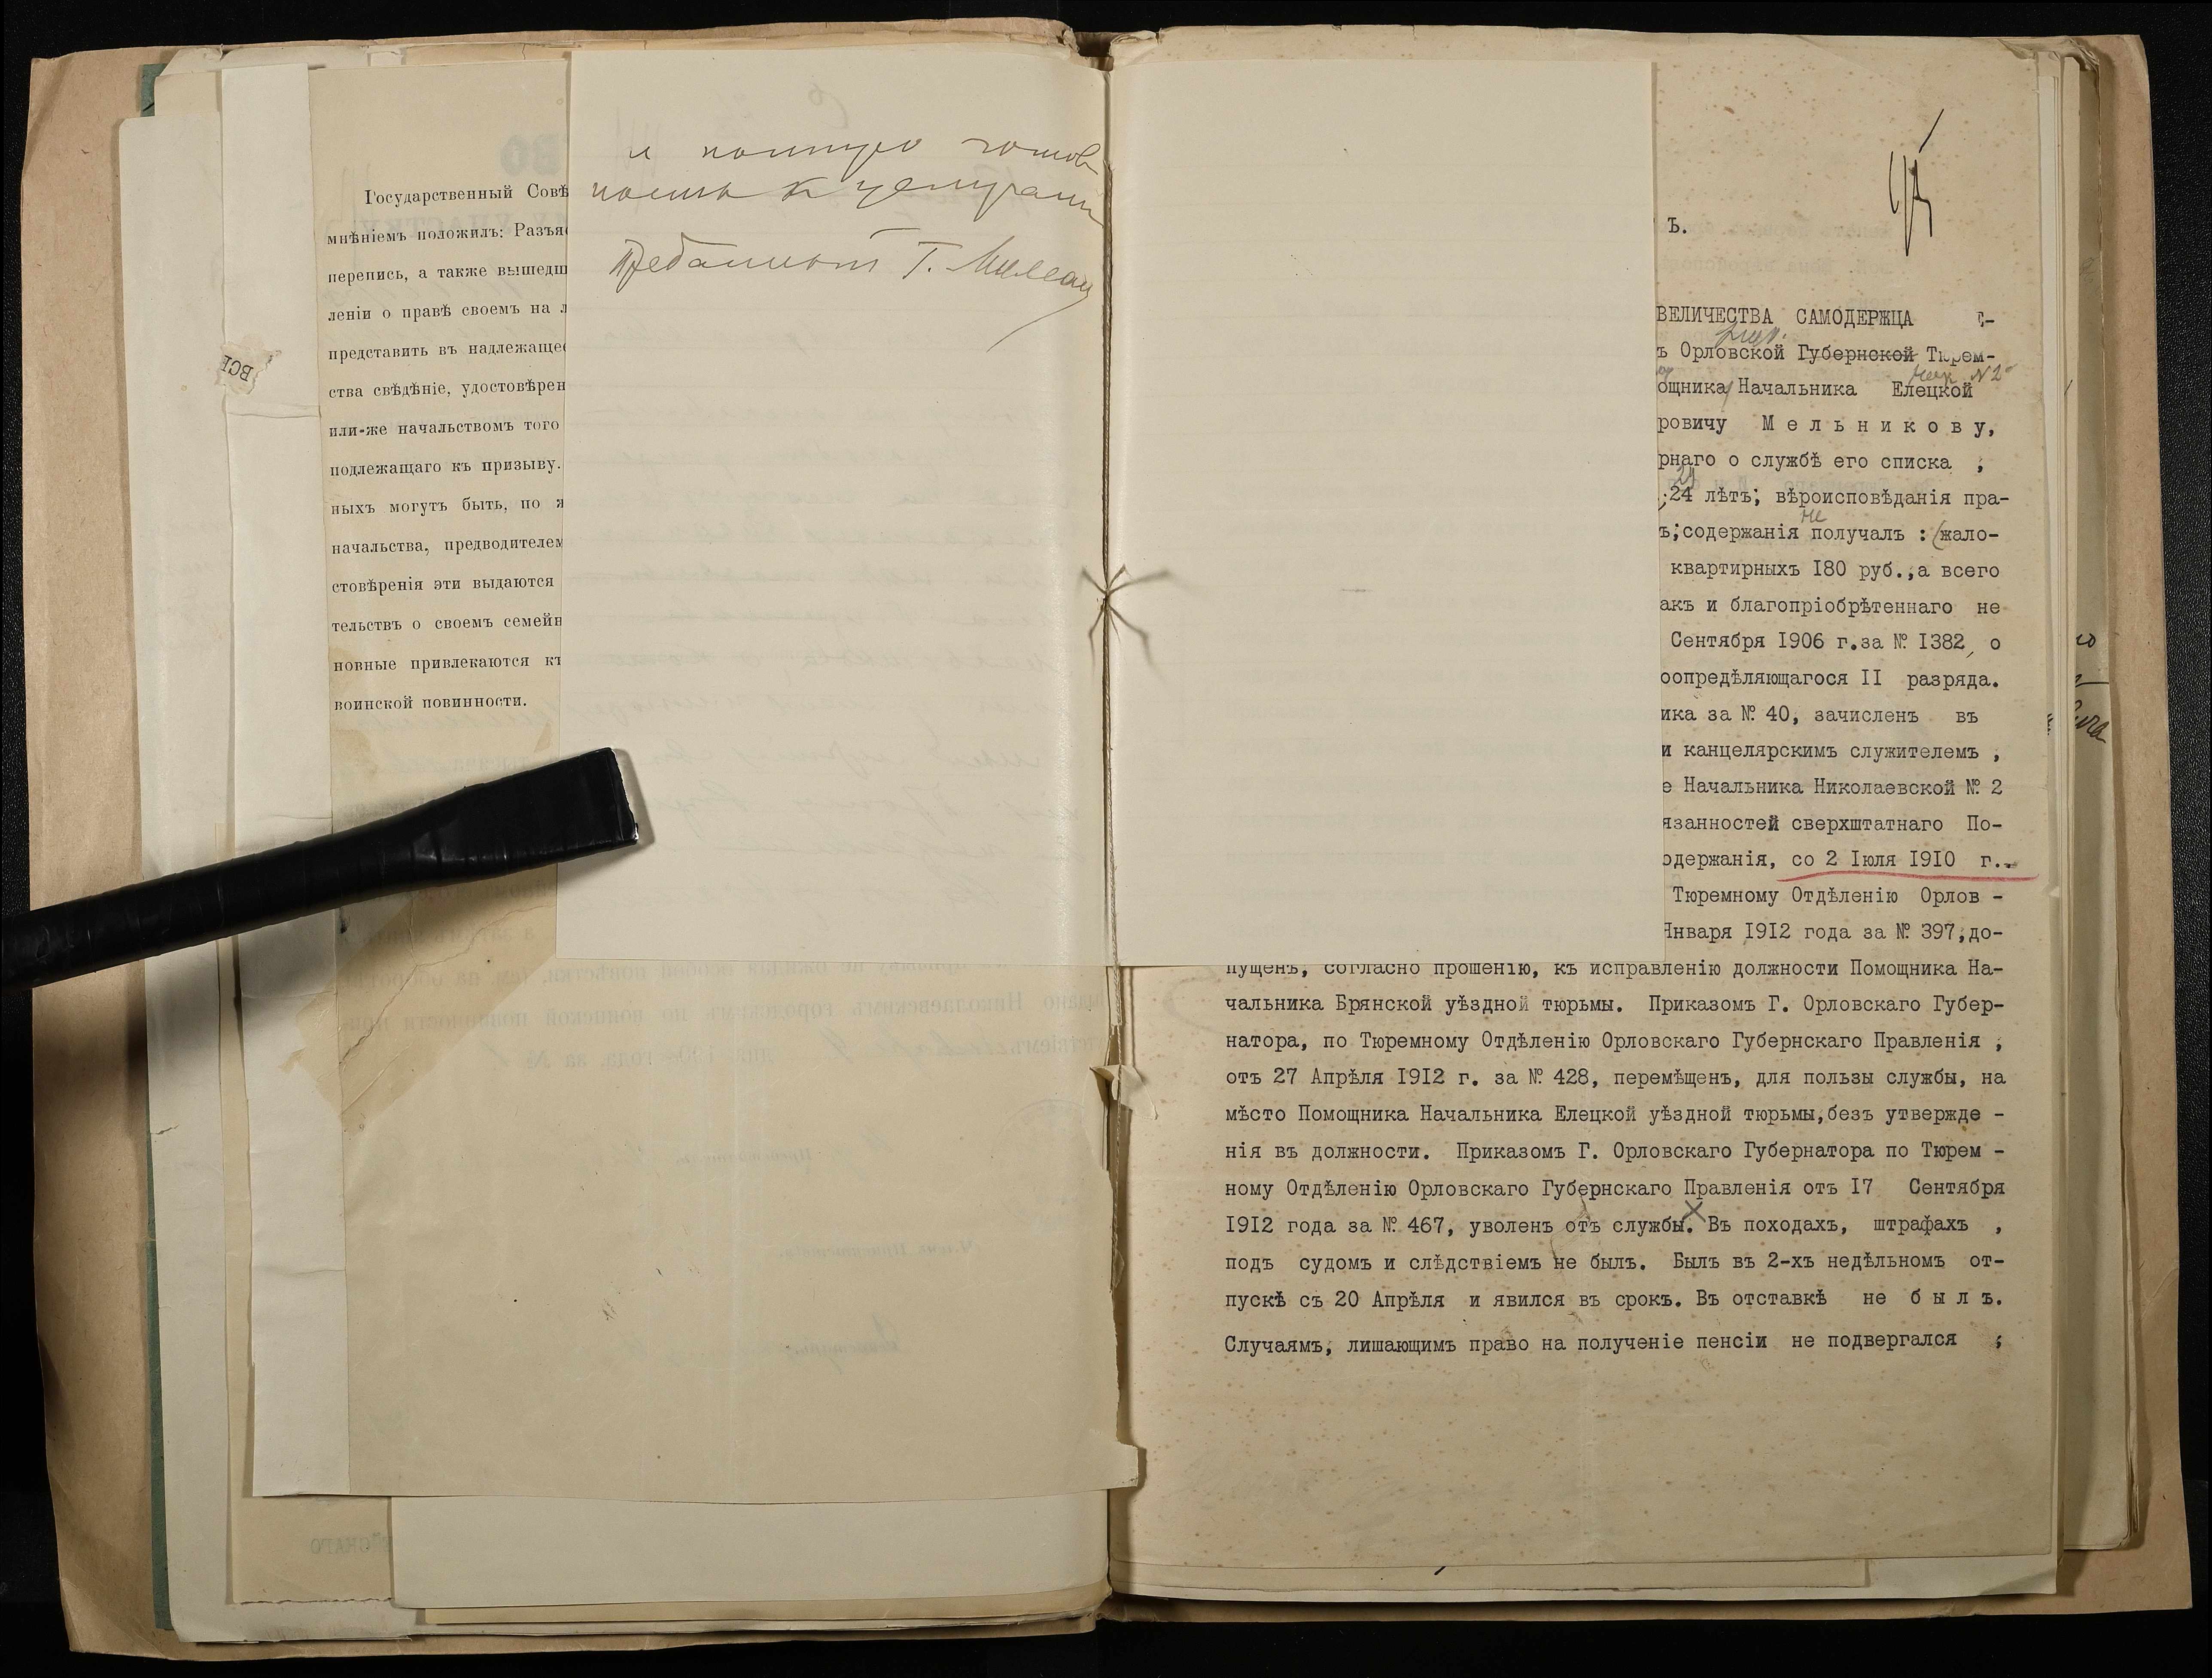 Государственный Совѣ
мнѣніемъ положилъ: Разъя
перепись, а также вышедш
леніи о правѣ своемъ на л
представить въ надлежаще
ства свѣдѣніе, удостовѣрен
или-же начальствомъ того
подлежащаго къ призыву.
ныхъ могутъ быть, по ж
начальства, предводителем
стовѣренія эти выдаются
тельствъ о своемъ семейн
новные привлекаются к
воинской повинности.
ВСІ
и полную готов
ность к услугам
Преданный Г.
ъ.
ВЕЛИЧЕСТВА САМОДЕРЖЦА
ъ Орловской Губернской Тюрем-
ощника Начальника Елецкой
№ 2
ровичу Мельникову,
рнаго о службѣ его списка ;
24
;24 лѣтъ; вѣроисповѣданія пра-
не
ъ;содержанія получалъ : (жало-
квартирныхъ I80 руб.,а всего
акъ и благопріобрѣтеннаго не
Сентября I906 г.за № I382, о
оопредѣляющагося II разряда.
ика за № 40, зачисленъ въ
и канцелярскимъ служителемъ ,
е Начальника Николаевской № 2
язанностей сверхштатнаго По-
одержанія, со 2 Іюля I9I0 г..
Тюремному Отдѣленію Орлов -
Января I9I2 года за № 397,до-
пущенъ, согласно прошенію, къ исправленію должности Помощника На-
чальника Брянской уѣздной тюрьмы. Приказомъ Г. Орловскаго Губер-
натора, по Тюремному Отдѣленію Орловскаго Губернскаго Правленія ,
отъ 27 Апрѣля I9I2 г. за № 428, перемѣщенъ, для пользы службы, на
мѣсто Помощника Начальника Елецкой уѣздной тюрьмы,безъ утвержде -
нія въ должности. Приказомъ Г. Орловскаго Губернатора по Тюрем -
ному Отдѣленію Орловскаго Губернскаго Правленія отъ I7 Сентября
I9I2 года за № 467, уволенъ отъ службы. Въ походахъ, штрафахъ ,
подъ судомъ и слѣдствіемъ не былъ. Былъ въ 2-хъ недѣльномъ от-
пускѣ съ 20 Апрѣля и явился въ срокъ. Въ отставкѣ не былъ.
Случаямъ, лишающимъ право на полученіе пенсіи не подвергался ;